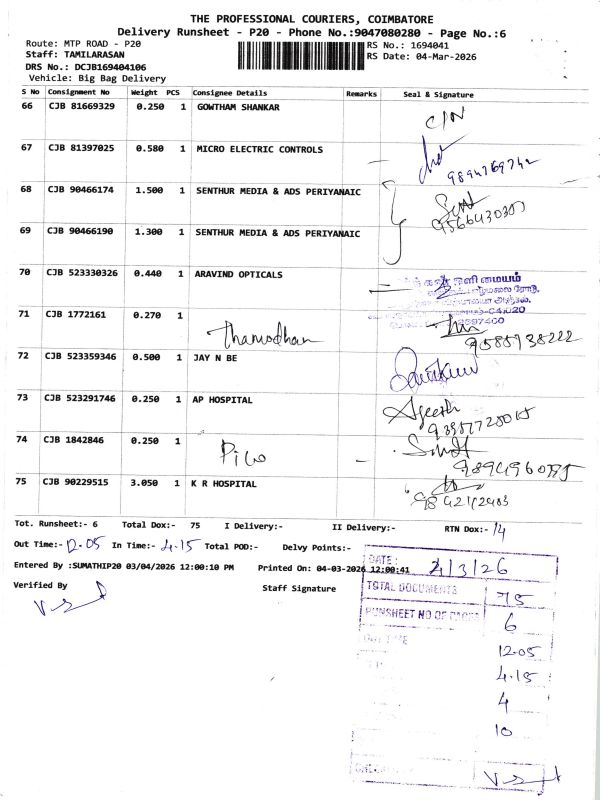 THE PROFESSIONAL COURIERS, COIMBATORE
Delivery Runsheet - P20 - Phone No.:9047080280 - Page No.:6
Route: MTP ROAD - P20
RS No.: 1694041
Staff: TAMILARASAN
RS Date: 04-Mar-2026
DRS No.: DCJB169404106
Vehicle: Big Bag Delivery
S No Consignment No Weight PCS Consignee Details Remarks Seal & Signature
66 CJB 81669329 0.250 1 GOWTHAM SHANKAR
67 CJB 81397025 0.580 1 MICRO ELECTRIC CONTROLS
68 CJB 90466174 1.500 1 SENTHUR MEDIA & ADS PERIYANAIC
69 CJB 90466190 1.300 1 SENTHUR MEDIA & ADS PERIYANAIC
70 CJB 523330326 0.440 1 ARAVIND OPTICALS
71 CJB 1772161 0.270 1
72 CJB 523359346 0.500 1 JAY N BE
73 CJB 523291746 0.250 1 AP HOSPITAL
74 CJB 1842846 0.250 1
75 CJB 90229515 3.050 1 K R HOSPITAL
Tot. Runsheet:- 6 Total Dox:- 75 I Delivery:- II Delivery:- RTN Dox:- 14
Out Time:- 12.05 In Time:- 4.15 Total POD:- Delvy Points:-
Entered By :SUMATHIP20 03/04/2026 12:00:10 PM Printed On: 04-03-2026 12:00:41
Verified By
Staff Signature
DATE: 4/3/26
TOTAL DOCUMENTS 75
RUNSHEET NO OF PAGES 6
12.05
4.15
4
10